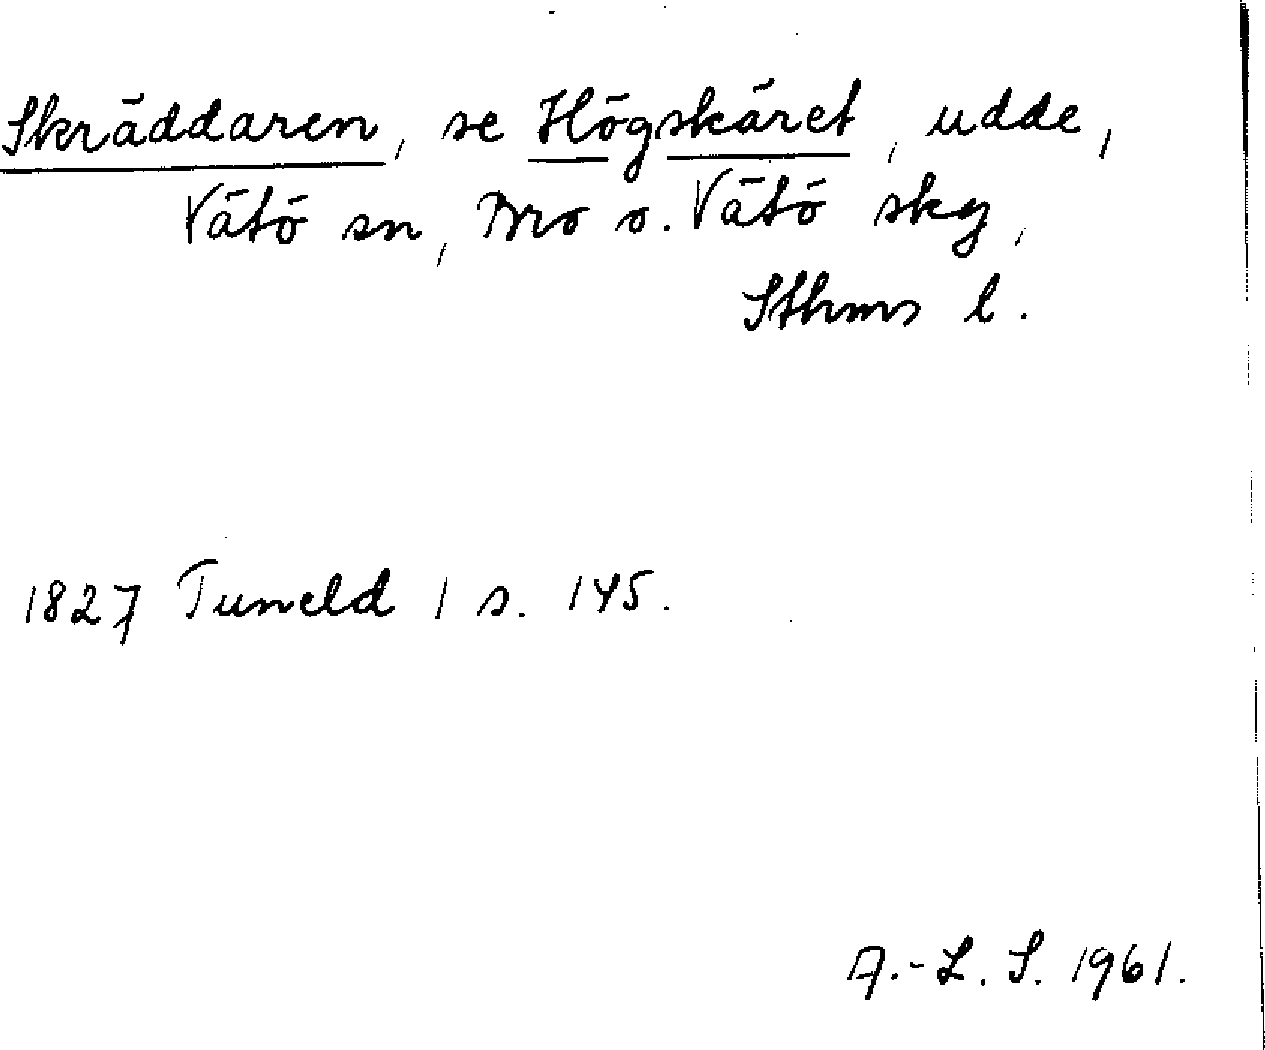 Skräddaren, se Högskäret, udde,
Vätö sn, Bro o. Vätö skg,
Sthms l.
1827 Tuneld 1 s. 145.
A.-L. S. 1961.